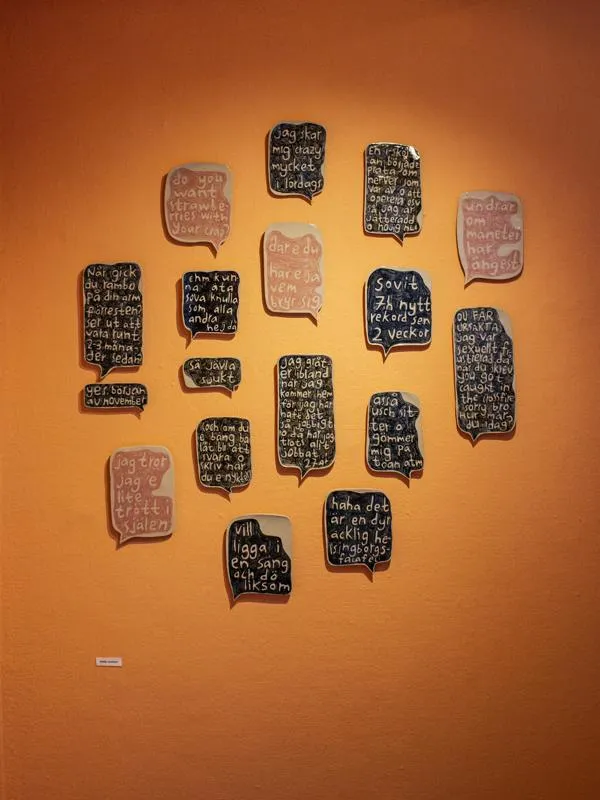 jag skar
mig crazy
mycket
i lördags
do you
want
strawbe
rries with
your crap?
an började
prata om
nerver som
var av o att
operera osv
så jag är
jätterädd
undrar
om
maneter
har
ångest
dare du
vem
bryr sig
När gick
du rambo
på din arm
förresten?
ser ut att
vara runt
2-3 måna-
der sedan
ehm kun
na äta
sova knulla
som alla
andra
hejdå
Sovit
7h nytt
rekord sen
2 veckor
OJ FÅR
URSÄKTA
jag var
sexuellt
när du skrev
you got
caught in
the
sorry bro
hur mår
du idag
så jävla
sjukt
yes början
av november
jag gråt-
er ibland
när jag
kommer hem
för jag har
haft det
så jobbigt
o då har jag
trots allt
jobbat
asså
usch sit-
ter o
gömmer
mig på
toan atm
och om du
e bang ba
låt bli att
svara o
skriv när
du e nykter
jag tror
jag e
lite
trött i
själen
vill
ligga i
en säng
och dö
liksom
haha det
är en dyr
äcklig he-
lsingborgs-
falafel